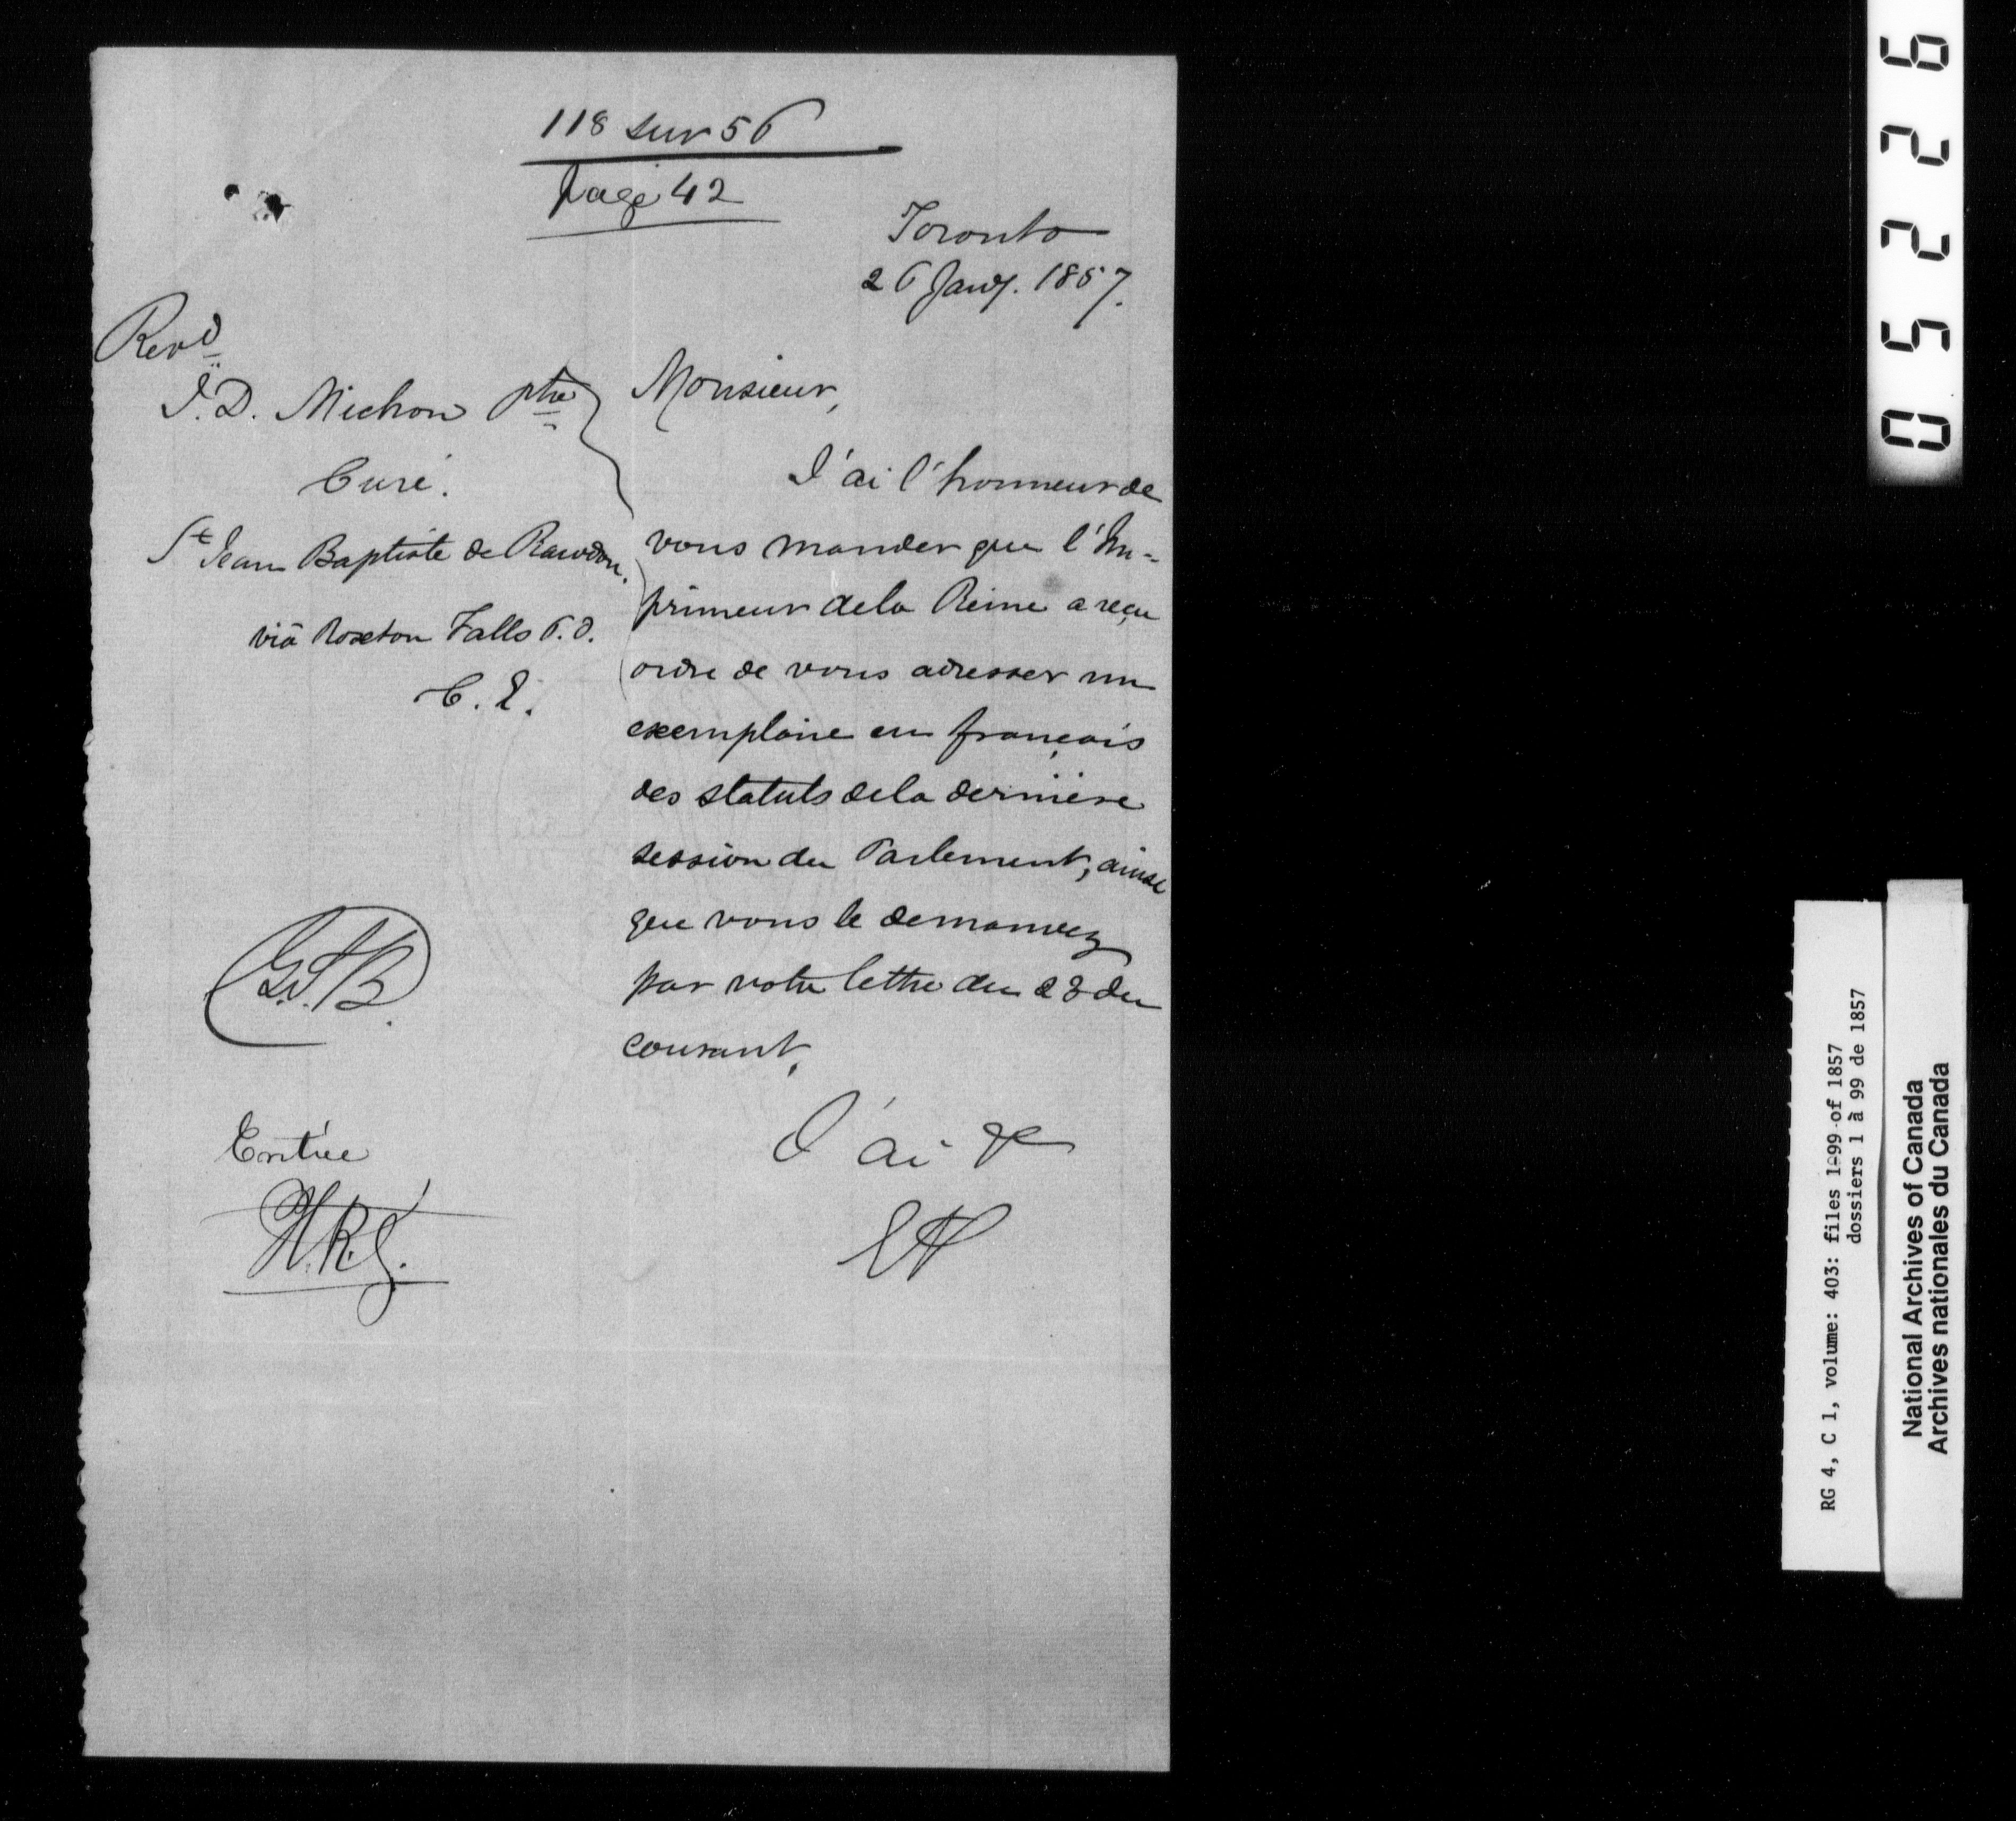 118 sur 56
page 42
Toronto
26 Janv. 1857.
Revd
J. D. Michon ptre
Curé.
St Jean Baptiste de Rawdon.
viâ Roxton Falls P.O.
C. E.
Monsieur,
J'ai l'honneur de
vous mander que l'Im-
primeur de la Reine a reçu
ordre de vous adresser un
exemplaire en français
des statuts de la dernière
session du Parlement, ainsi
que vous le demandez
par votre lettre du 23 du
courant.
J'ai &
EP
G.S.B.
Entrée
05226
RG 4, C 1, volume: 403: files 1-99 of 1857
dossiers 1 à 99 de 1857
National Archives of Canada
Archives nationales du Canada